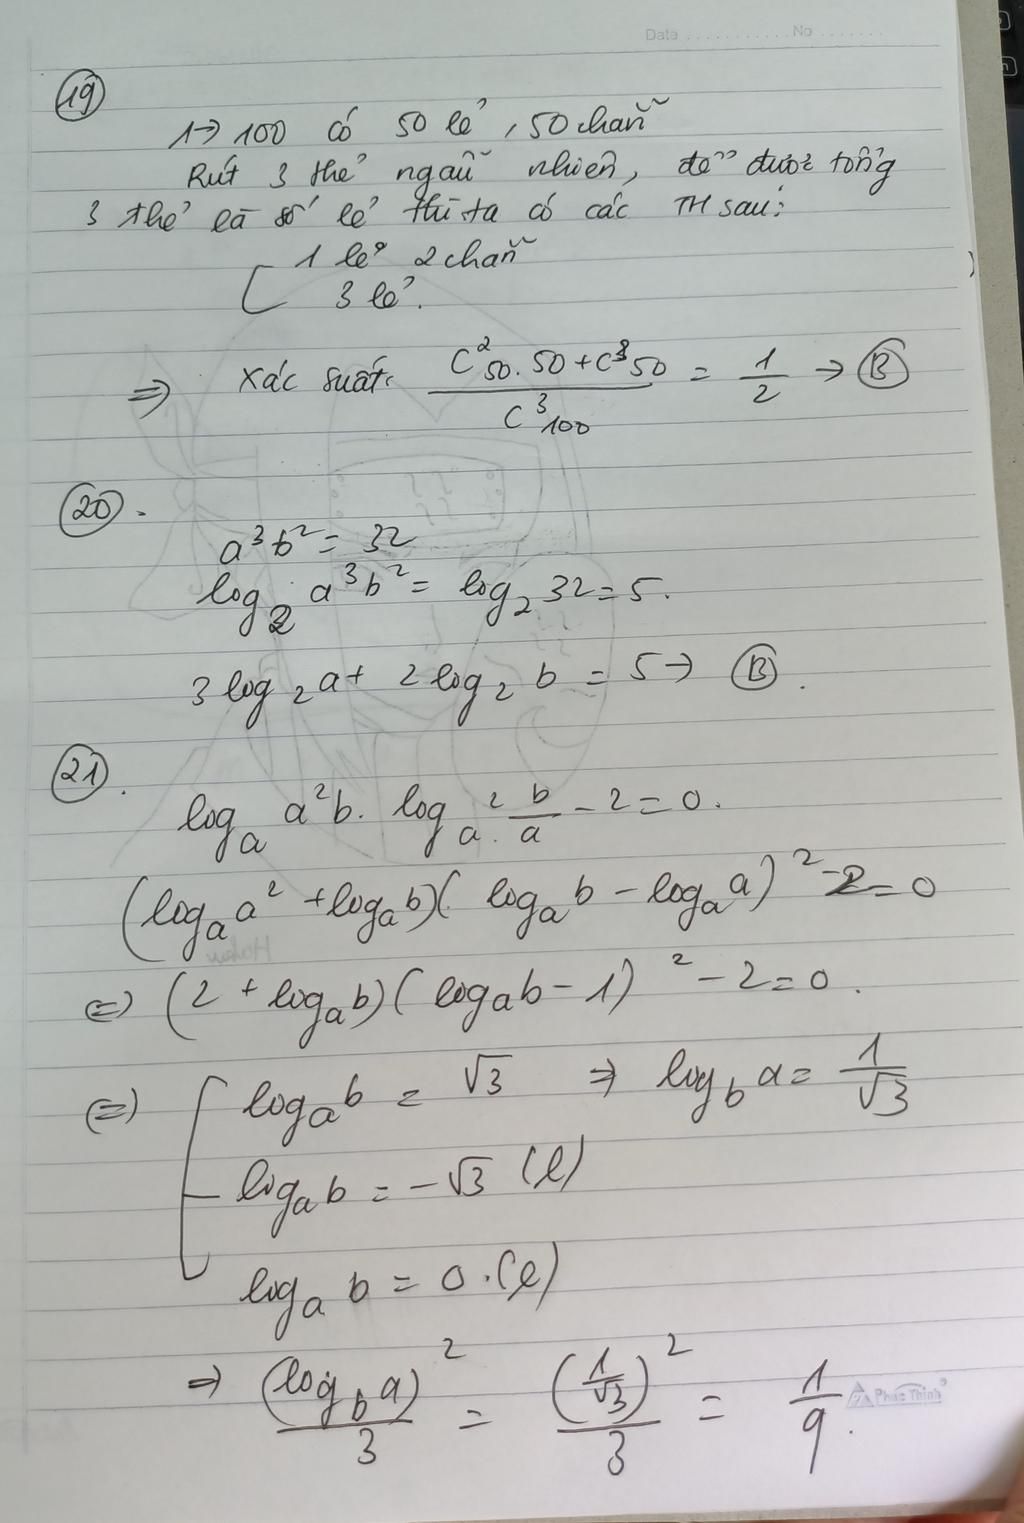 Date ........... No .......
19
1 → 100 có 50 lẻ, 50 chẵn
Rút 3 thẻ ngẫu nhiên, để được tổng
3 thẻ là số lẻ thì ta có các TH sau:
[ 1 lẻ 2 chẵn
3 lẻ.
⇒ Xác suất: (C²₅₀.50 + C³₅₀)/C³₁₀₀ = 1/2 → B
20.
a³b² = 32
log₂ a³b² = log₂ 32 = 5.
3log₂a + 2log₂b = 5 → B.
21.
logₐ a²b. logₐ² b/a - 2 = 0.
(logₐa² + logₐb)(logₐb - logₐa)² - 2 = 0
⇔ (2 + logₐb)(logₐb - 1)² - 2 = 0.
⇔ [ logₐb = √3 ⇒ log_b a = 1/√3
logₐb = -√3 (l)
logₐb = 0. (l)
⇒ (log_b a)²/3 = (1/√3)²/3 = 1/9.
Phúc Thịnh